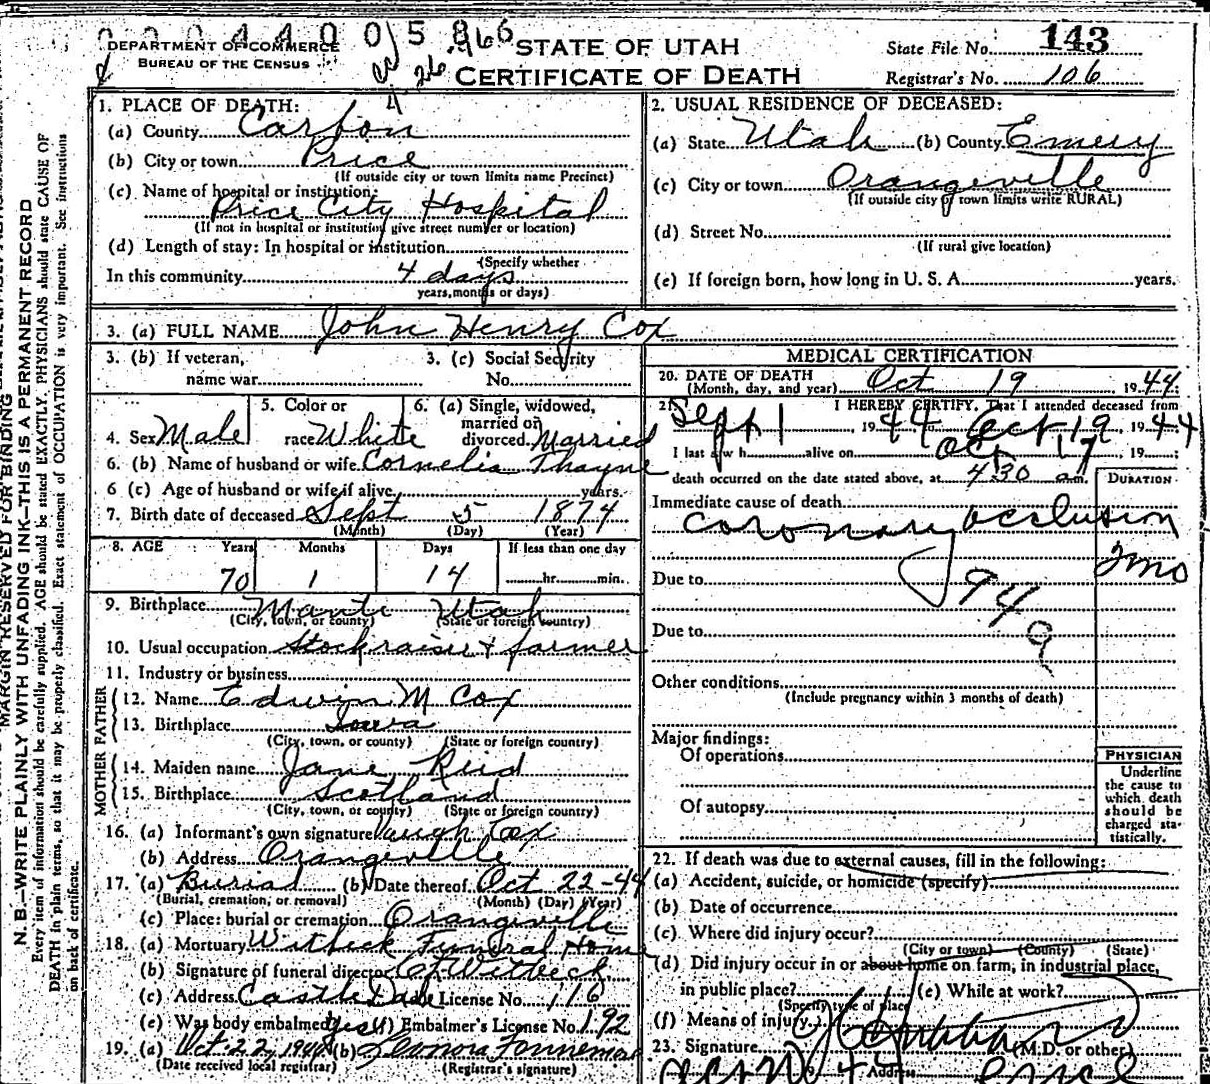 DEPARTMENT OF COMMERCE
BUREAU OF THE CENSUS
STATE OF UTAH
CERTIFICATE OF DEATH
State File No. 143
Registrar's No. 106
MARGIN RESERVED FOR BINDING
N. B.—WRITE PLAINLY WITH UNFADING INK—THIS IS A PERMANENT RECORD
Every item of information should be carefully supplied. AGE should be stated EXACTLY. PHYSICIANS should state CAUSE OF
DEATH in plain terms, so that it may be properly classified. Exact statement of OCCUPATION is very important. See instructions
on back of certificate.
1. PLACE OF DEATH:
(a) County Carbon
(b) City or town Price
(If outside city or town limits name Precinct)
(c) Name of hospital or institution:
Price City Hospital
(If not in hospital or institution give street number or location)
(d) Length of stay: In hospital or institution
(Specify whether
In this community 4 days
years, months or days)
2. USUAL RESIDENCE OF DECEASED:
(a) State Utah (b) County Emery
(c) City or town Orangeville
(If outside city of town limits write RURAL)
(d) Street No.
(If rural give location)
(e) If foreign born, how long in U. S. A. years.
3. (a) FULL NAME John Henry Cox
3. (b) If veteran,
name war
3. (c) Social Security
No.
4. Sex Male
5. Color or
race White
6. (a) Single, widowed,
married or
divorced Married
6. (b) Name of husband or wife Cornelia Thayne
6 (c) Age of husband or wife if alive years.
7. Birth date of deceased Sept 5 1874
(Month) (Day) (Year)
8. AGE Years Months Days If less than one day
70 1 14 hr. min.
9. Birthplace Manti Utah
(City, town, or county) (State or foreign country)
10. Usual occupation Stockraiser & farmer
11. Industry or business
FATHER
12. Name Edwin M Cox
13. Birthplace Iowa
(City, town, or county) (State or foreign country)
MOTHER
14. Maiden name Jane Reid
15. Birthplace Scotland
(City, town, or county) (State or foreign country)
16. (a) Informant's own signature Cox
(b) Address Orangeville
17. (a) Burial (b) Date thereof Oct 22-44
(Burial, cremation, or removal) (Month) (Day) (Year)
(c) Place: burial or cremation Orangeville
18. (a) Mortuary Witbeck Funeral Home
(b) Signature of funeral director Witbeck
(c) Address Castle Dale License No. 116
(e) Was body embalmed yes (f) Embalmer's License No. 192
19. (a) Oct. 22, 1944 (b) Leonora
(Date received local registrar) (Registrar's signature)
MEDICAL CERTIFICATION
20. DATE OF DEATH
(Month, day, and year) Oct 19 1944:
21. I HEREBY CERTIFY, That I attended deceased from
Sept 1 1944 Oct 19, 1944
I last saw h alive on Oct 17, 19
death occurred on the date stated above, at 4:30 a.m.
DURATION
Immediate cause of death
coronary occlusion
2 mo
Due to
94a
Due to
Other conditions
(Include pregnancy within 3 months of death)
Major findings:
Of operations
Of autopsy
PHYSICIAN
Underline
the cause to
which death
should be
charged sta-
tistically.
22. If death was due to external causes, fill in the following:
(a) Accident, suicide, or homicide (specify)
(b) Date of occurrence
(c) Where did injury occur?
(City or town) (County) (State)
(d) Did injury occur in or about home on farm, in industrial place,
in public place? (e) While at work?
(Specify type of place)
(f) Means of injury
23. Signature (M.D. or other)
Address Price